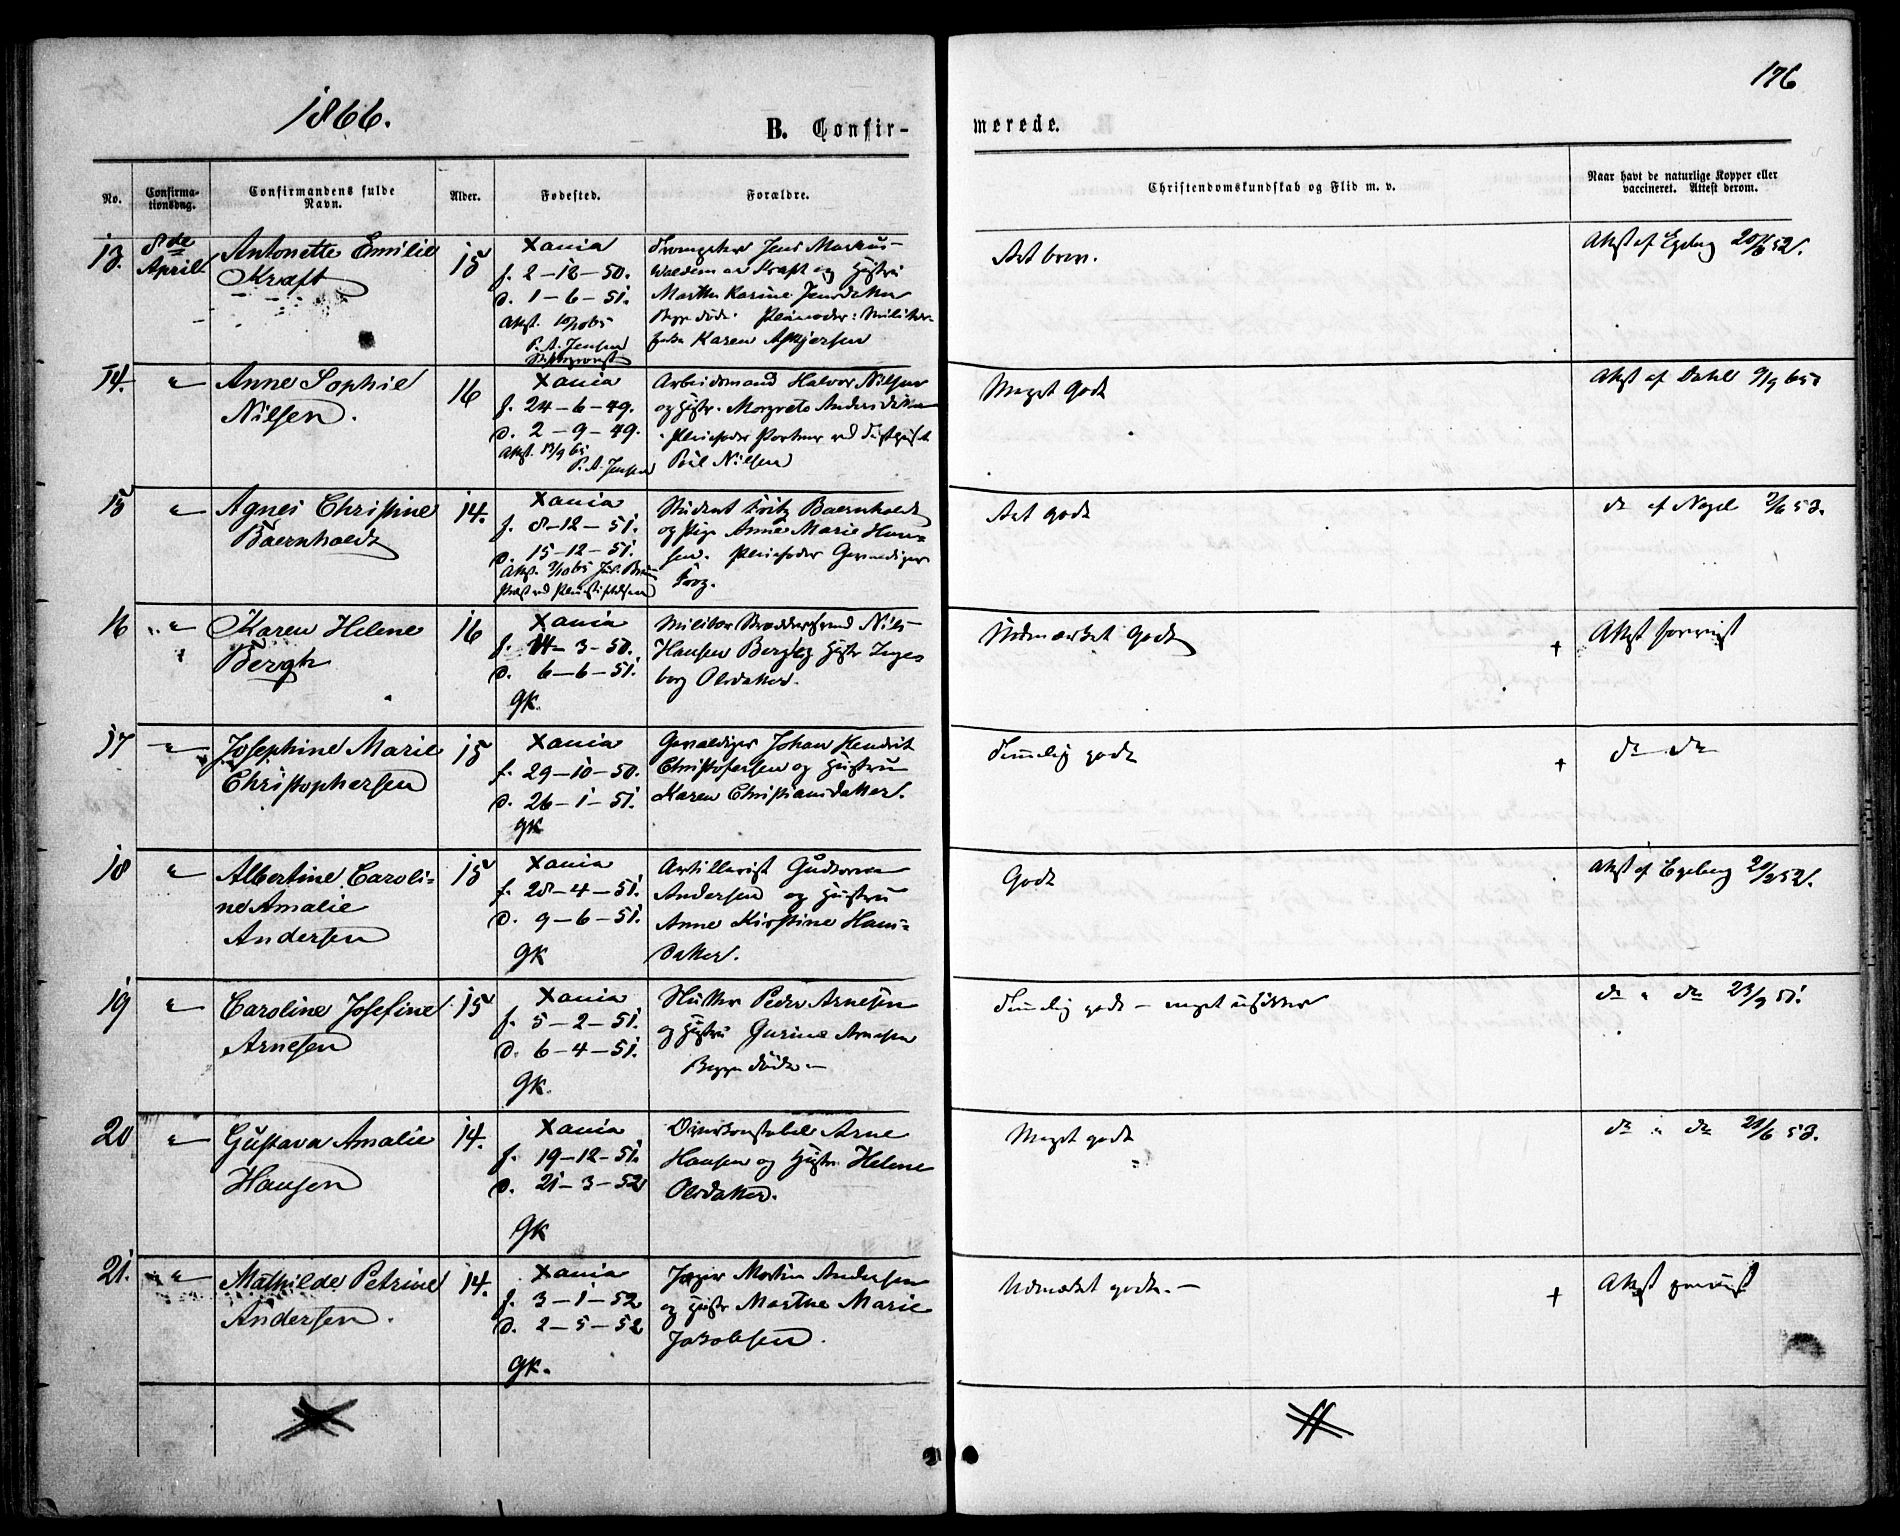 1866.
176
B. Confir-
merede.
No.
Confirma-
tionsdag.
Confirmandens fulde
Navn.
Alder.
Fødested.
Forældre.
Christendomskundskab og Flid m. v.
Naar havt de naturlige Kopper eller
vaccineret. Attest derom.
13.
8de
April
Antonette Emilie
Kraft
15
Xania
f. 2-12-50.
d. 1-6-51.
Attst. 10/10 65
P. A. Jensen
Jens Markus
Waldemar Kraft og Hustru
Marthe Karine Jensdatter
Begge døde. Pleiemoder:
Karen Asbjørsen
Attst af Egeberg 20/6 52.
14.
"
Anne Sophie
Nilsen.
16
Xania
f. 24-6-49.
d. 2-9-49.
Attst. 13/9 65
P. A. Jensen
Arbeidsmand Halvor Nilsen
og Hustr. Margrete Andersdatter
Pleiefader Portner ved
Poul Nilsen
Meget Godt
Attst af Dahl 9/9 65
15
"
Agnes Christine
Baernholdt
14.
Xania
f. 8-12-51.
d. 15-12-51.
Attst. 2/10 65
Student Fritz Baernholdt
og Pige Anne Marie Han-
sen. Pleiefader Gevaldiger
Forg.
godt
do af Nagel 2/6 53.
16
"
Karen Helene
Bergh
16
Xania
f. 14-3-50.
d. 6-6-51.
GK.
Militær Nils
Hansen Bergh og Hustr Inge-
borg Olsdatter.
Udmærket Godt
+
Attst forevist
17
"
Josephine Marie
Christophersen
15
Xania
f. 29-10-50.
d. 26-1-51.
GK
Gevaldiger Johan Hendrik
Christofersen og Hustru
Karen Christiansdatter.
Temmelig godt
+
do do
18
"
Albertine Caroli-
ne Amalie
Andersen
15
Xania
f. 28-4-51.
d. 9-6-51.
GK
Artillerist Gudorm
Andersen og Hustru
Anne Kirstine Hans-
datter.
Godt
Attst af Egeberg
19
"
Caroline Josefine
Arnesen
15
Xania
f. 5-2-51.
d. 6-4-51.
GK.
Peder Arnesen
og Hustru Gurine Arnesen
Begge døde
Temmelig godt - meget usikker
do " do 23/9 51.
20
"
Gustava Amalie
Hansen
14.
Xania
f. 19-12-51.
d. 21-3-52
GK
Arne
Hansen og Hustr. Helene
Olsdatter.
Meget godt
do " do 20/6 53.
21.
"
Mathilde Petrine
Andersen.
14.
Xania
f. 3-1-52
d. 2-5-52
GK.
Jæger Martin Andersen
og Hustr Marthe Marie
Jakobsen.
Udmærket godt. -
+
Attst forevist